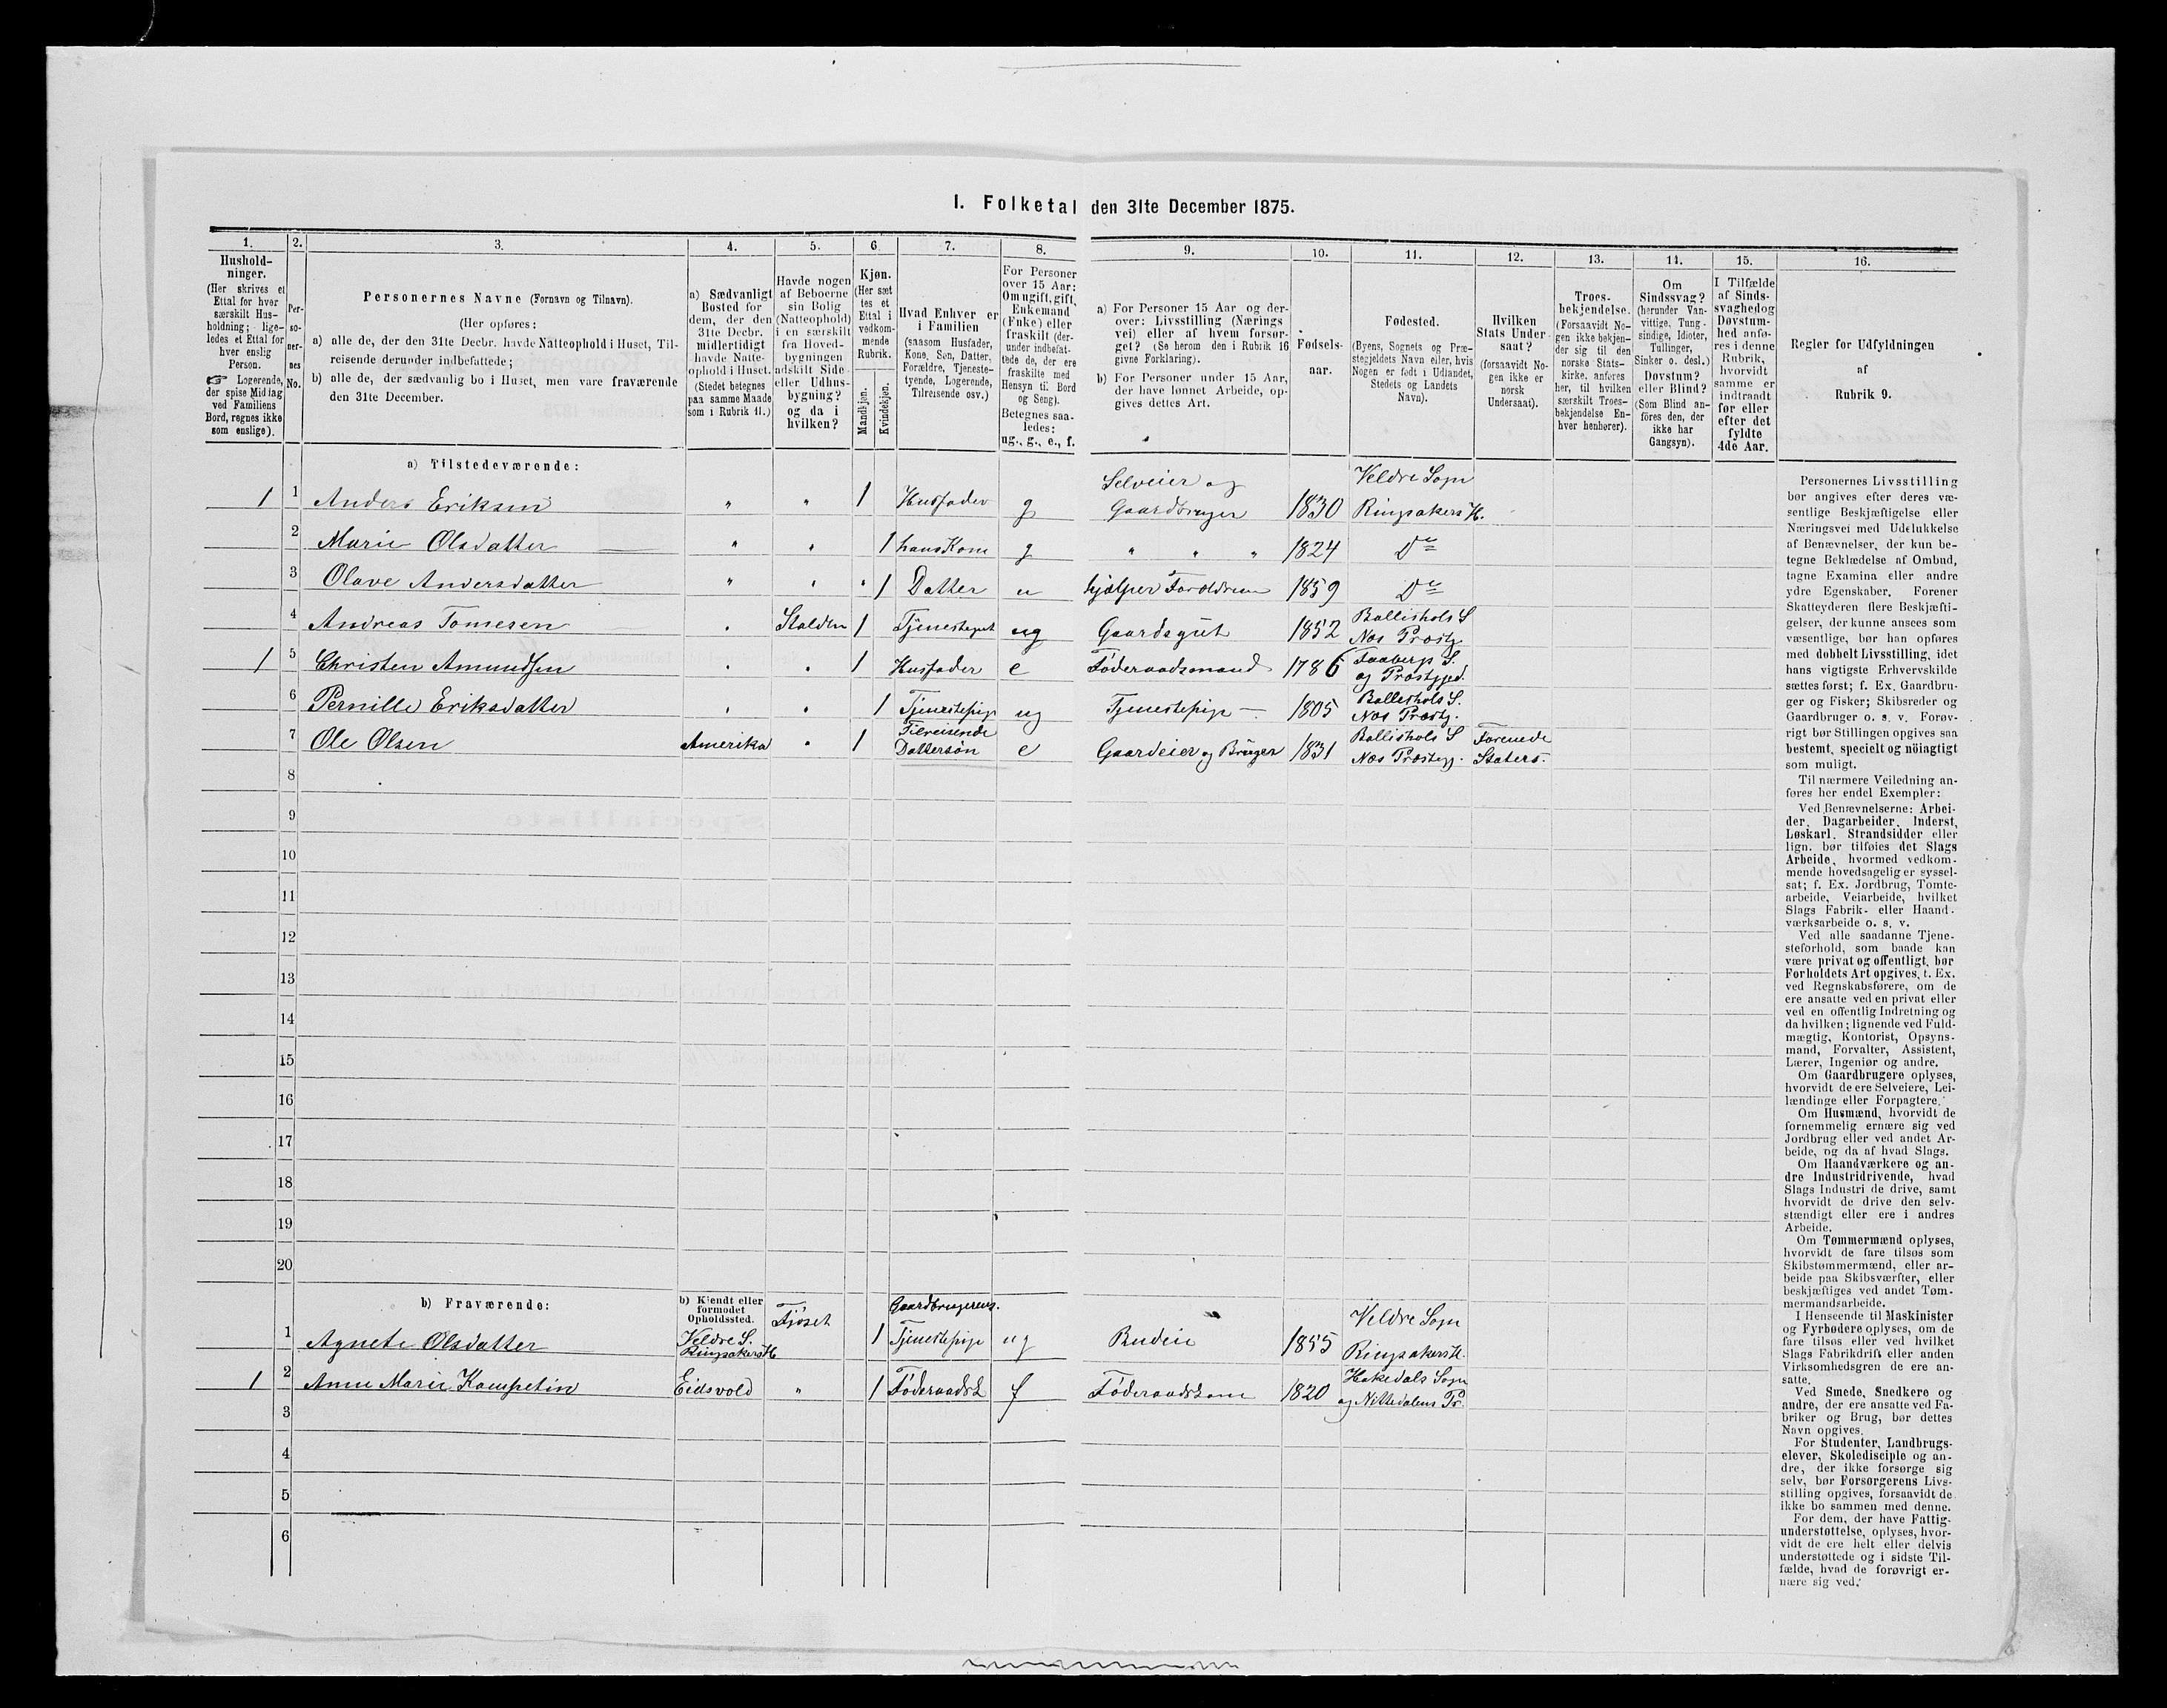 I. Folketal den 31te December 1875.
1. 2. 3. 4. 5. 6. 7. 8. 9. 10. 11. 12. 13. 14. 15. 16.
Hushold-
ninger.
(Her skrives et
Ettal for hver
særskilt Hus-
holdning; lige-
ledes et Ettal for
hver enslig
Person.
☞ Logerende,
der spise Middag
ved Familiens
Bord, regnes ikke
som enslige).
Per-
so-
ner-
nes
No.
Personernes Navne (Fornavn og Tilnavn).
(Her opføres:
a) alle de, der den 31te Decbr. havde Natteophold i Huset, Til-
reisende derunder indbefattede;
b) alle de, der sædvanlig bo i Huset, men vare fraværende
den 31te December.
a) Sædvanligt
Bosted for
dem, der den
31te Decbr.
midlertidigt
havde Natte-
ophold i Huset.
(Stedet betegnes
paa samme Maade
som i Rubrik 11.)
Havde nogen
af Beboerne
sin Bolig
(Natteophold)
i en særskilt
fra Hoved-
bygningen
adskilt Side-
eller Udhus-
bygning?
og da i
hvilken?
Kjøn.
(Her sæt-
tes et
Ettal i
vedkom-
mende
Rubrik.
Mandkjøn.
Kvindekjøn.
Hvad Enhver er
i Familien
(saasom Husfader,
Kone, Søn, Datter,
Forældre, Tjeneste-
tyende, Logerende,
Tilreisende osv.)
For Personer
over 15 Aar:
Om ugift, gift,
Enkemand
(Enke) eller
fraskilt (der-
under indbefat-
tede de, der ere
fraskilte med
Hensyn til Bord
og Seng).
Betegnes saa-
ledes:
ug., g., e., f.
a) For Personer 15 Aar og der-
over: Livsstilling (Nærings-
vei) eller af hvem forsør-
get? (Se herom den i Rubrik 16
givne Forklaring).
b) For Personer under 15 Aar,
der have lønnet Arbeide, op-
gives dettes Art.
Fødsels-
aar.
Fødested.
(Byens, Sognets og Præ-
stegjeldets Navn eller, hvis
Nogen er født i Udlandet,
Stedets og Landets
Navn).
Hvilken
Stats Under-
saat?
(forsaavidt No-
gen ikke er
norsk
Undersaat).
Troes-
bekjendelse.
(Forsaavidt No-
gen ikke bekjen-
der sig til den
norske Stats-
kirke, anføres
her, til hvilken
særskilt Troes-
bekjendelse En-
hver henhører).
Om
Sindssvag?
(herunder Van-
vittige, Tung-
sindige, Idioter,
Tullinger,
Sinker o. desl.)
Døvstum?
eller Blind?
(Som Blind an-
føres den, der
ikke har
Gangsyn).
I Tilfælde
af Sinds-
svaghed og
Døvstum-
hed anfø-
res i denne
Rubrik,
hvorvidt
samme er
indtraadt
før eller
efter det
fyldte
4de Aar.
Regler for Udfyldningen
af
Rubrik 9.
a) Tilstedeværende:
Selveier og Veldre Sogn
1 1 Anders Eriksen " " 1 Husfader g Gaardbruger 1830 Ringsakers H.
2 Marie Olsdatter " " 1 hans Kone g " " " 1824 Do
3 Olave Andersdatter " " " 1 Datter u hjælper Forældrene 1859 Do
Ballishols S
4 Andreas Tomesen " Stalden 1 Tjenestegut ug Gaardsgut 1852 Næs Præstg
Faabergs S.
1 5 Christen Amundsen " " 1 Husfader e Föderaadsmand 1786 og Præstgjed.
Ballishols S.
6 Pernille Eriksdatter " " 1 Tjenestepige ug Tjenestepige — 1805 Næs Præstg.
Tilreisende Ballishols S Forenede
7 Ole Olsen Amerika " 1 Dattersön e Gaardeier og Brüger 1831 Næs Præstegj. Staters.
8
9
10
11
12
13
14
15
16
17
18
19
20
b) Fraværende:
b) Kjendt eller
formodet
Opholdssted.
Fjöset Gaardbrugerens. Veldre Sogn
1 Agnete Olsdatter Veldre S. Ringsakers H 1 Tjenestepige ug Budeie 1855 Ringsakers H.
Hakedals Sogn
1 2 Anne Marie Kampetin Eidsvold " 1 Föderaadsk f Föderaadskone 1820 og Nittedalens Pr.
3
4
5
6
Personernes Livsstilling
bør angives efter deres væ-
sentlige Beskjæftigelse eller
Næringsvei med Udelukkelse
af Benævnelser, der kun be-
tegne Beklædelse af Ombud,
tagne Examina eller andre
ydre Egenskaber. Forener
Skatteyderen flere Beskjæfti-
gelser, der kunne ansees som
væsentlige, bør han opføres
med dobbelt Livsstilling, idet
hans vigtigste Erhvervskilde
sættes først; f. Ex. Gaardbru-
ger og Fisker; Skibsreder og
Gaardbruger o. s. v. Forøv-
rigt bør Stillingen opgives saa
bestemt, specielt og nöiagtigt
som muligt.
Til nærmere Veiledning an-
føres her endel Exempler:
Ved Benævnelserne: Arbei-
der, Dagarbeider, Inderst,
Løskarl, Strandsidder eller
lign. bør tilføies det Slags
Arbeide, hvormed vedkom-
mende hovedsagelig er syssel-
sat; f. Ex. Jordbrug, Tomte-
arbeide, Veiarbeide, hvilket
Slags Fabrik- eller Haand-
værksarbeide o. s. v.
Ved alle saadanne Tjene-
steforhold, som baade kan
være privat og offentligt, bør
Forholdets Art opgives, t. Ex.
ved Regnskabsførere, om de
ere ansatte ved en privat eller
ved en offentlig Indretning og
da hvilken; lignende ved Fuld-
mægtig, Kontorist, Opsyns-
mand, Forvalter, Assistent,
Lærer, Ingeniør og andre.
Om Gaardbrugere oplyses,
hvorvidt de ere Selveiere, Lei-
lændinge eller Forpagtere.
Om Husmænd, hvorvidt de
fornemmelig ernære sig ved
Jordbrug eller ved andet Ar-
beide, og da af hvad Slags.
Om Haandværkere og an-
dre Industridrivende, hvad
Slags Industri de drive, samt
hvorvidt de drive den selv-
stændigt eller ere i andres
Arbeide.
Om Tømmermænd oplyses,
hvorvidt de fare tilsøs som
Skibstømmermænd, eller ar-
beide paa Skibsværfter, eller
beskjæftiges ved andet Tøm-
mermandsarbeide.
I Henseende til Maskinister
og Fyrbødere oplyses, om de
fare tilsøs eller ved hvilket
Slags Fabrikdrift eller anden
Virksomhedsgren de ere an-
satte.
Ved Smede, Snedkere og
andre, der ere ansatte ved Fa-
briker og Brug, bør dettes
Navn opgives.
For Studenter, Landbrugs-
elever, Skoledisciple og an-
dre, der ikke forsørge sig
selv, bør Forsørgerens Livs-
stilling opgives, forsaavidt de
ikke bo sammen med denne.
For dem, der have Fattig-
understøttelse, oplyses, hvor-
vidt de ere helt eller delvis
understøttede og i sidste Til-
fælde, hvad de forøvrigt er-
nære sig ved.